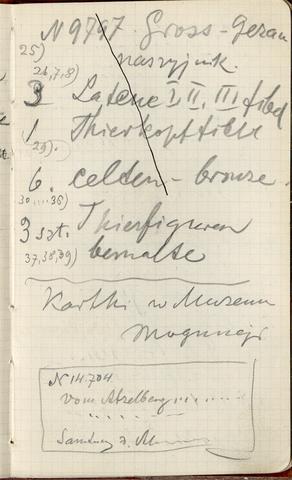 N 9797 Gross-Gerau
25) naszyjnik.
26,7,8)
3 Latene I, II, III fibel
1 Thierkopffibel
29).
6. celten - bronze.
30,....35)
3 szt. Thierfiguren
37,38,39) bemalte
Kartki w Muzeum
Moguncji
N 14.704
vom Atzelberg
Samlung d.